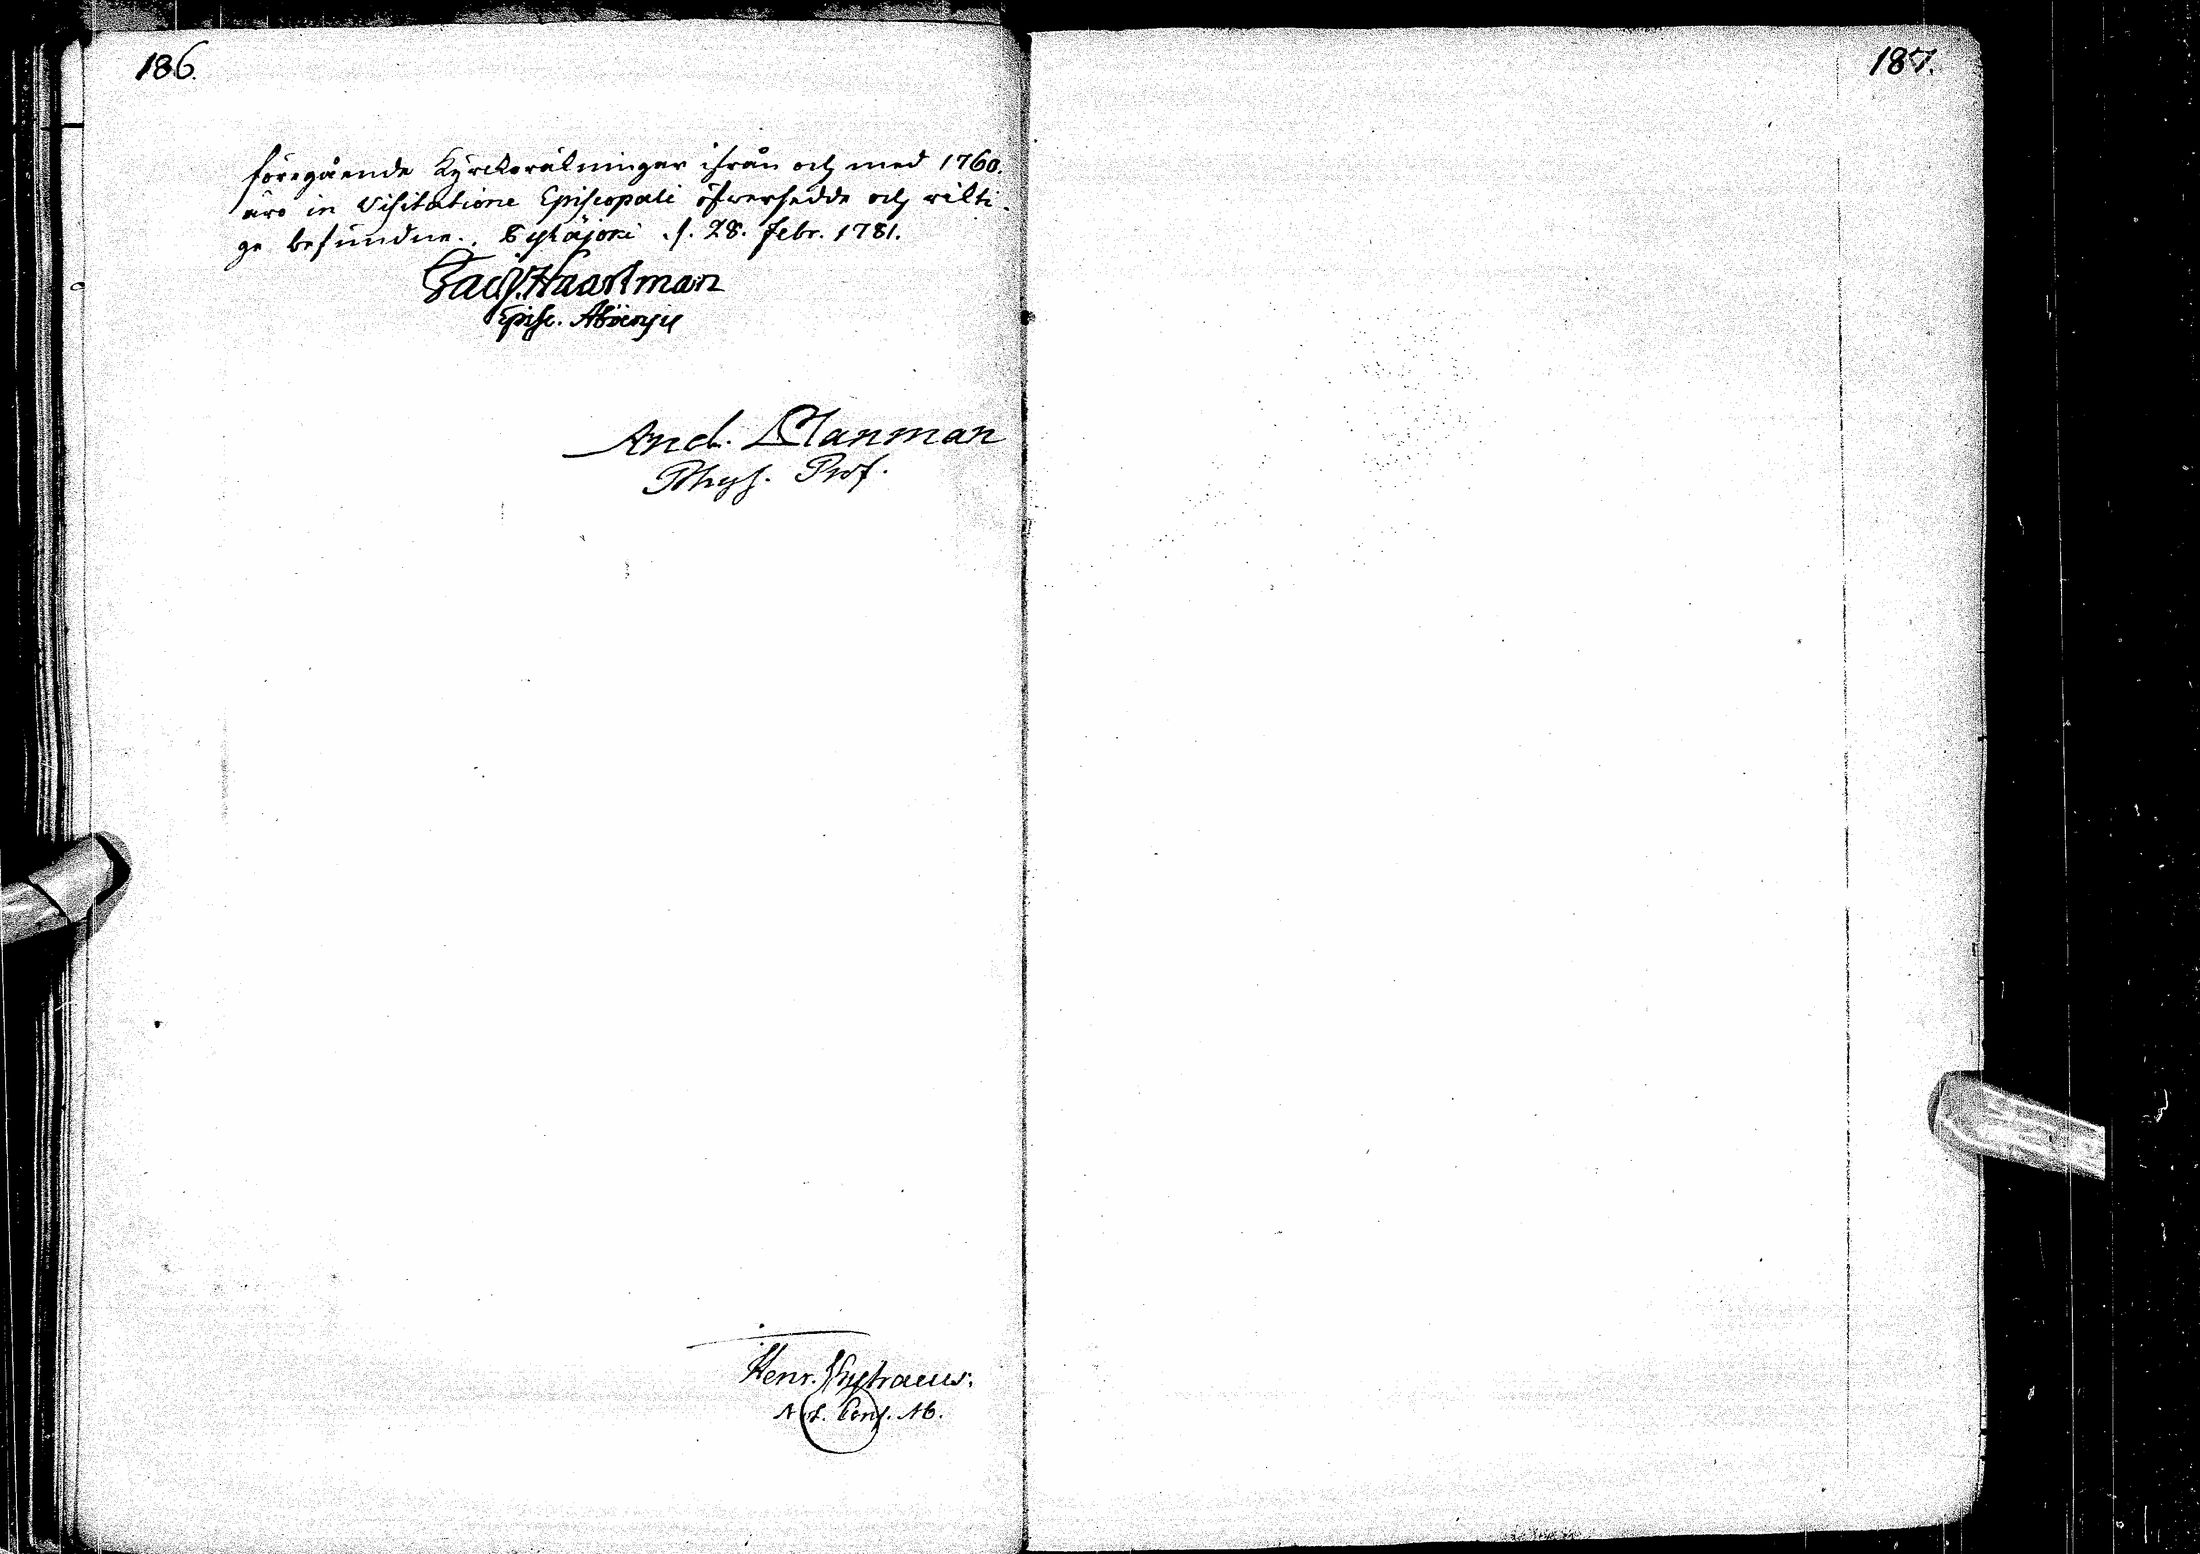 186.
föregående Kyrckoräkningar ifrån och med 1760.
äro in Visitatione Episcopali öfwersedde och rikti-
ge befundne. Pyhäjoki d. 28. Febr. 1781.
Jac. Haartman
Episc. Aboensis
And. Planman
Phys. Prof.
Henr.
Not. Cons. Ab.
187.